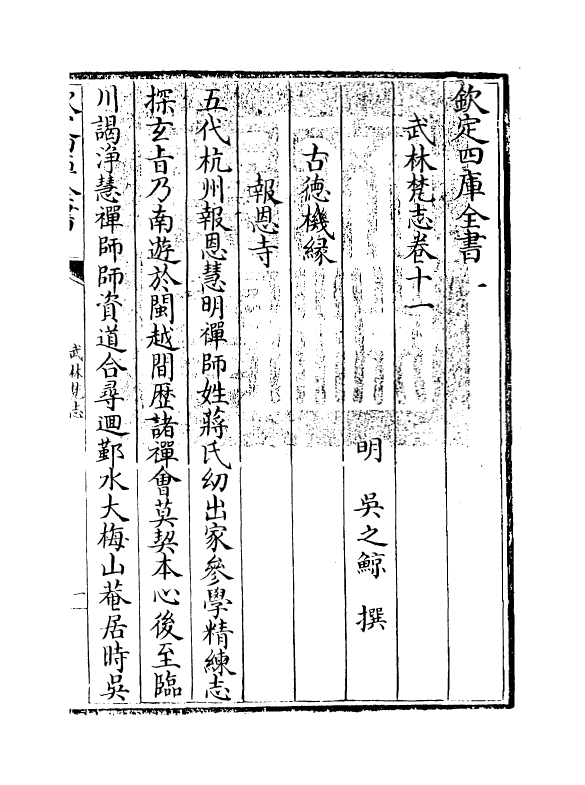 欽定四庫全書
武林梵志卷十一
明 吳之鯨 撰
古德機緣
報恩寺
五代杭州報恩慧明禪師姓蔣氏幼出家參學精練志
探玄㫖乃南遊於閩越間歴諸禪會莫契本心後至臨
川謁淨慧禪師師資道合尋迴鄞水大梅山菴居時吳
武林梵志